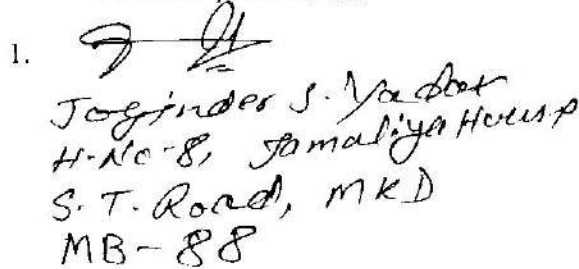 1.
Joginder S. Yadav
H-No-8, Jamaliya House
S. T. Road, MKD
MB-88